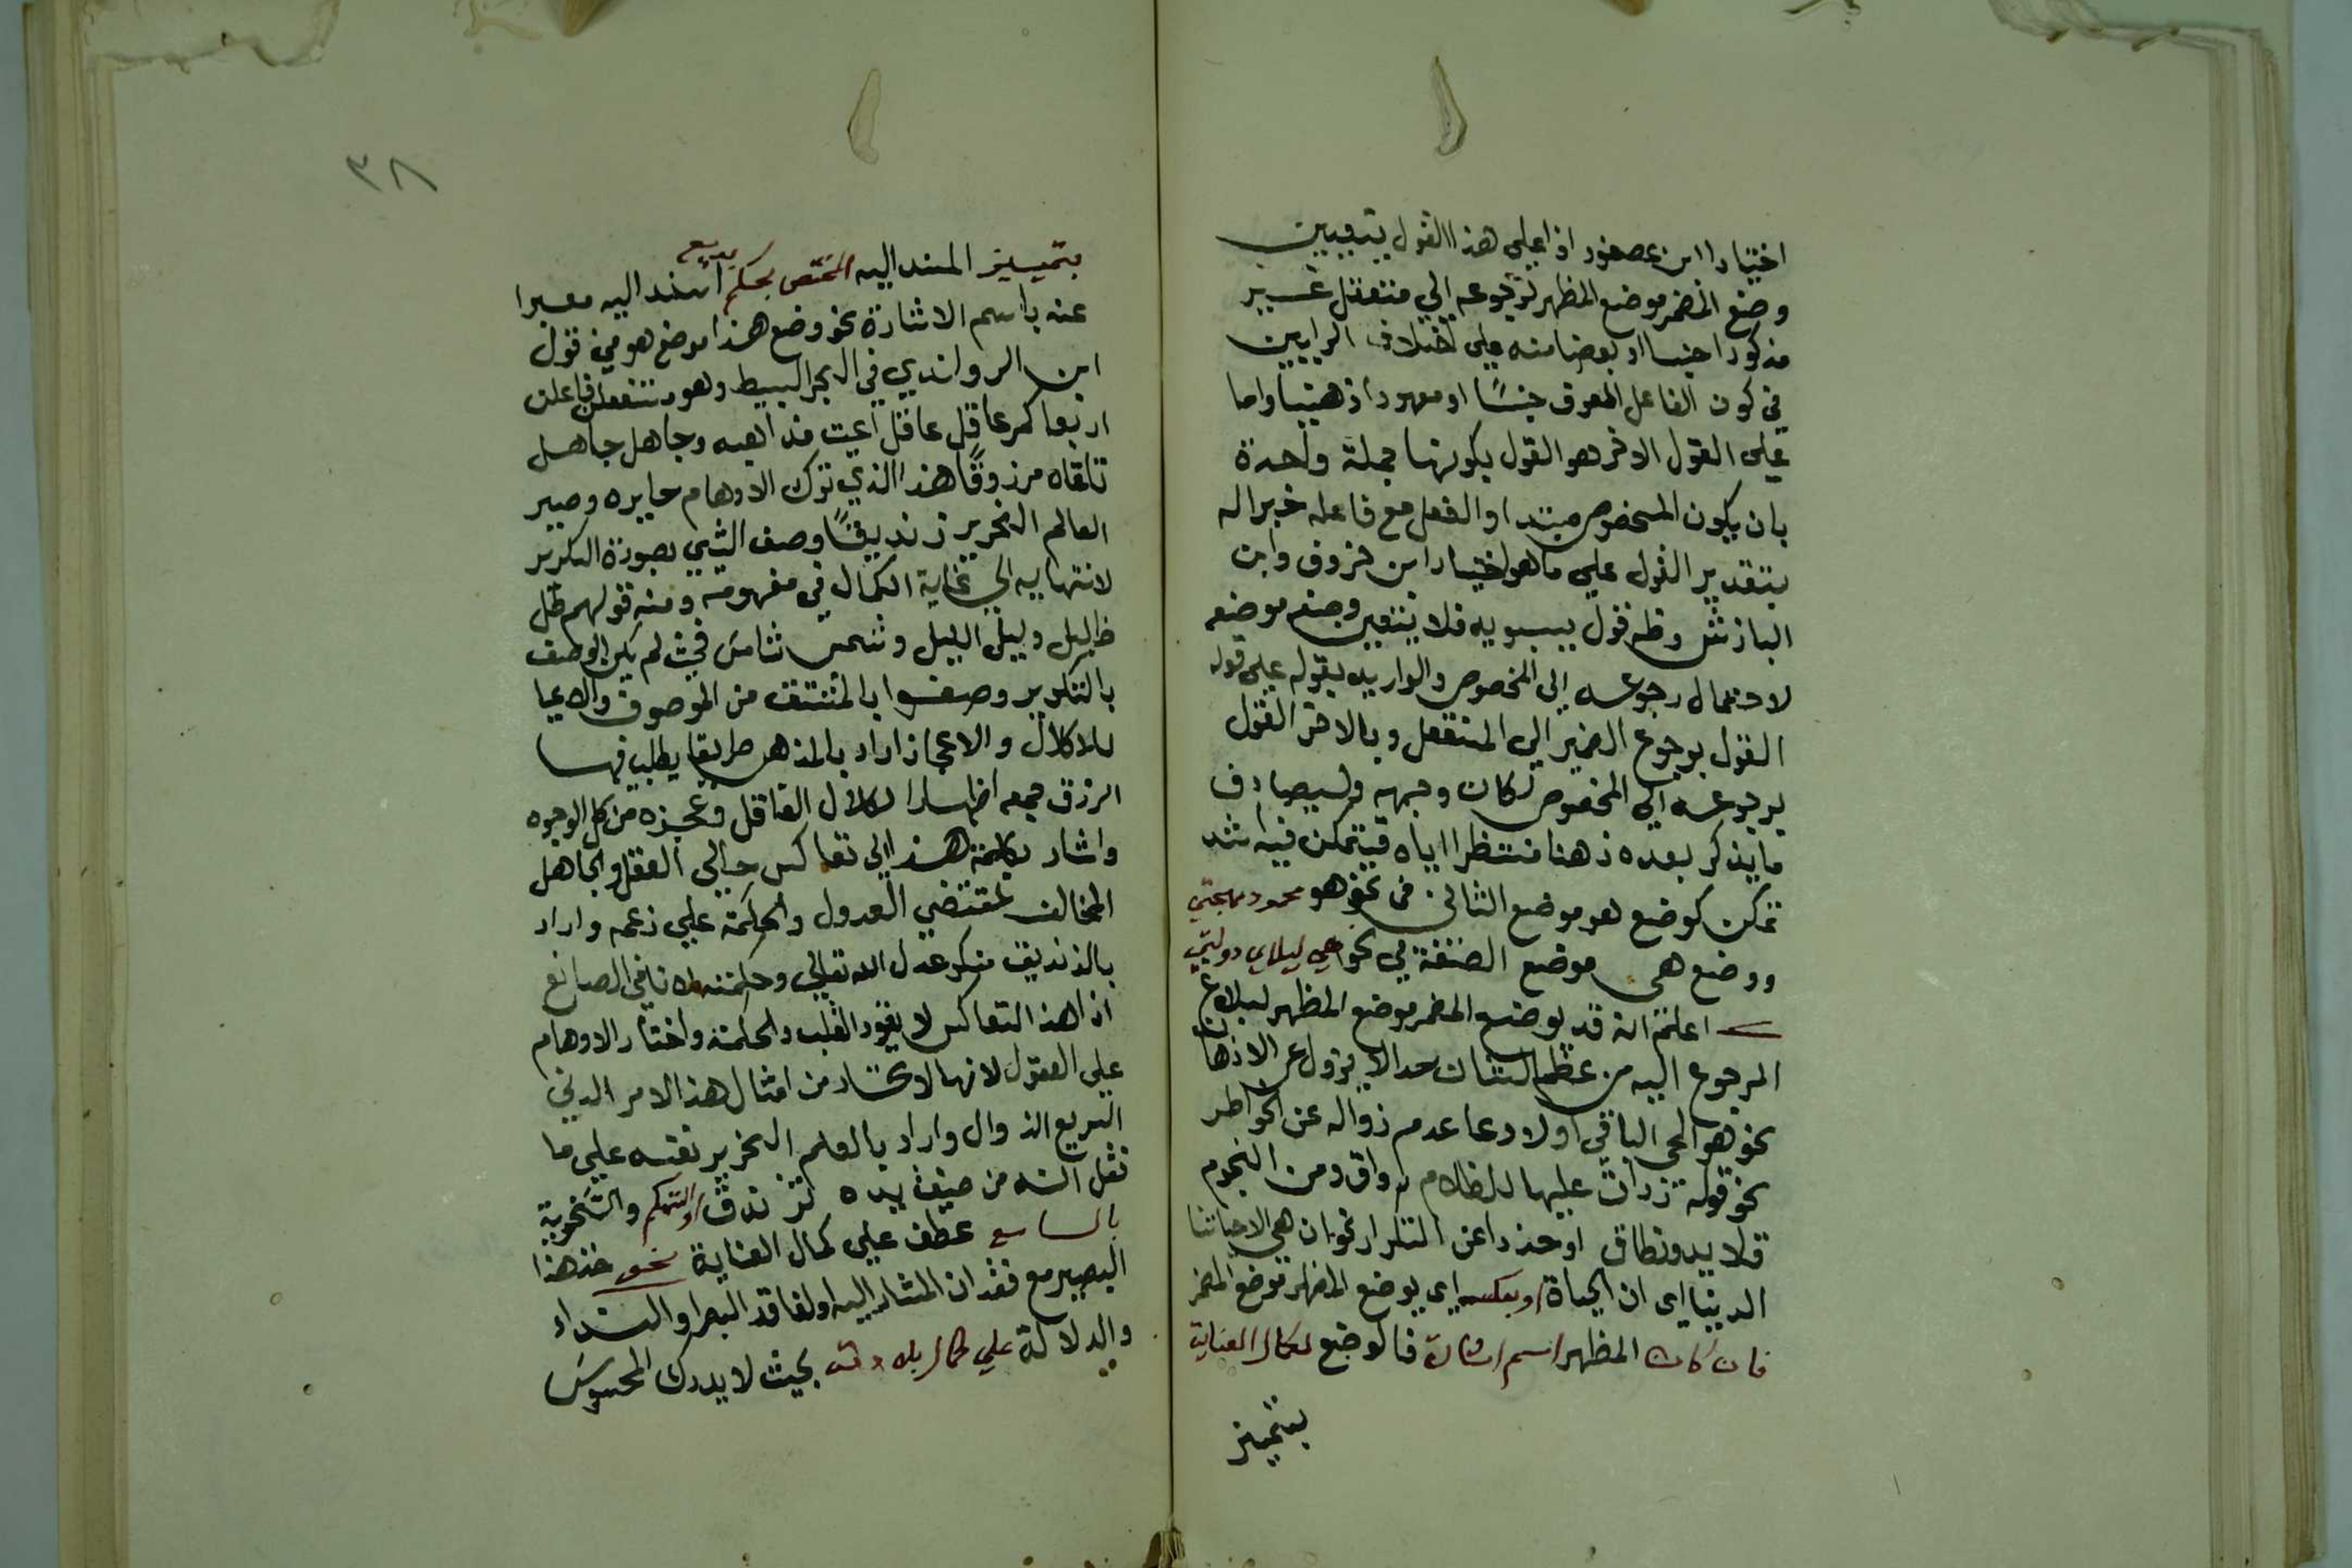 اختيارا ابن عصفور اذا على هذا القول يتعين
وضع المضمر موضع المظهر لرجوعه الي متعقل غير
مذكور اجنسا او بعضا منه على اختلاف الرايين
في كون الفاعل المعرف جنسًا او معهودا ذهنيا واما
على القول الاخر هو القول بكونها جملة واحدة
بان يكون المخصوص مبتدا والفعل مع فاعله خبرا له
بتقدير القول على ما هو اختيار ابن خروف وابن
الباذش وظ قول سيبويه فلا يتعين وضع موضعه
لاحتمال رجوعه الى المخصوص والوا يريد بقوله على قول
القول برجوع الضمير الي المتعقل وبالاخر القول
برجوعه الي المخصوص لكان وجيه وليصادف
ما يذكر بعده ذهنا منتظرا اياه فيتمكن فيه اشد
تمكن كوضع هو موضع الثاني في نحو هو محمود مهجتي
ووضع هي موضع القصة في نحو هي ليلاي دولتي
اعلم انه قد يوضع المضمر موضع المظهر لبلاغ
المرجوع اليه من عظم الشان حدا لا يزول عن الاذهان
نحو هو الحي الباقي اولادعا عدم زواله عن الخواطر
نحو قوله زارت عليها للظلام رواق ومن النجوم
قلايد ونطاق او حذرا عن التكرار نحو ان هي الا حياتنا
الدنيا اي ان الحياة او بعكسه اي يوضع المظهر موضع المضمر
فان كان المظهر اسم اشارة فالوضع لكمال العناية
بتميز
٣٨
بتمييز المسند اليه المختص بحكم بديع اسند اليه معبرا
عنه باسم الاشارة نحو وضع هذا موضع هو في قول
ابن الرواندي في البحر البسيط وهو مستفعلن فاعلن
اربعا كم عاقل عاقل اعيت مذاهبه وجاهل جاهل
تلقاه مرزوقًا هذا الذي ترك الاوهام حايره وصير
العالم النحرير زنديقًا وصف الشي بصورة التكرير
لانتهايه الي غاية الكمال في مفهومه ومنه قولهم ظل
ظليل وليل اليل وشمس شامس فحيث لم يكن الوصف
بالتكرير وصفوا بالمشتق من الموصوف والاعيا
للاكلال والاعجاز اراد بالمذهب طريقا يطلب فيها
الرزق جمعه اظهارا لكلال العاقل وعجزه من كل الوجوه
واشار بكلمة هذا الي تعاكس حالي العقل والجاهل
المخالف لمقتضي العدول والحكمة علي زعمه واراد
بالزنديق منكر عدل الله تعالي وحكمته لا نافي الصانع
اذ هذا التعاكس لا يقود القلب والحكمة واختار الاوهام
علي العقول لانها لا تحتار من امثال هذا الامر الدني
السريع الزوال واراد بالعلم النحرير نفسه علي ما
نقل انه من ضعف يده تزندق او التهكم والسخرية
بالسامع عطف علي كمال العناية نحو خذ هذا
البصير مع فقدان المشار اليه او لفاقد البصر او النداء
والدلالة علي كمال بلادته بحيث لا يدرك المحسوس